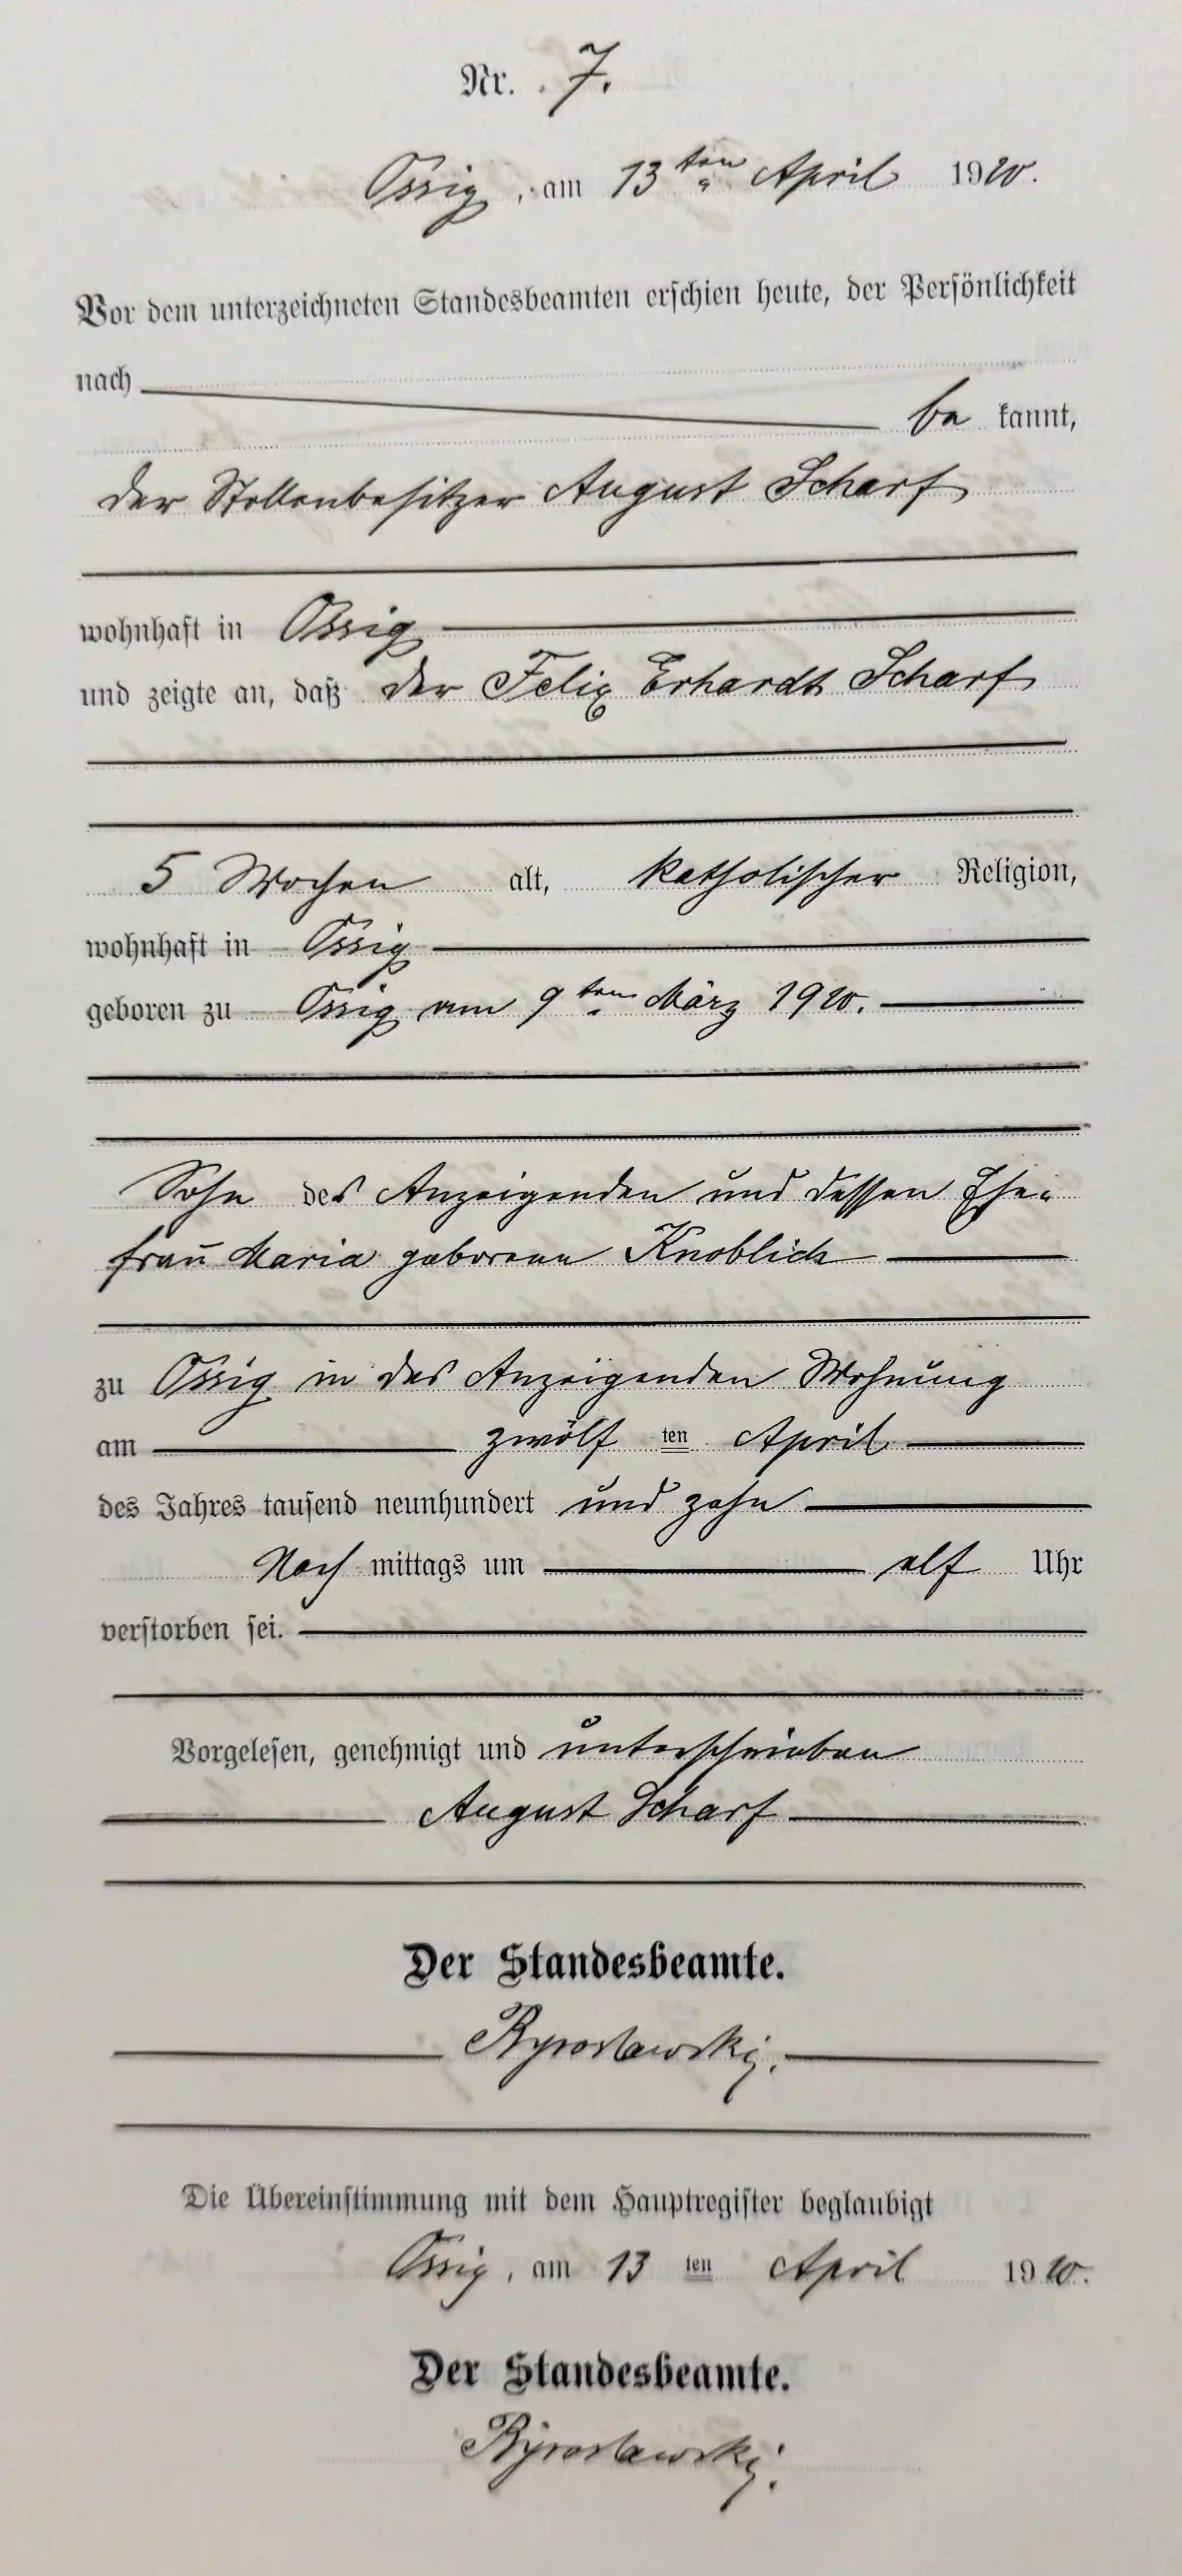 Nr. 7.
Ossig, am 13ten April 1910.
Vor dem unterzeichneten Standesbeamten erschien heute, der Persönlichkeit
nach
be kannt,
der Stellenbesitzer August Scharf
wohnhaft in Ossig
und zeigte an, daß der Felix Erhardt Scharf
5 Wochen alt, katholischer Religion,
wohnhaft in Ossig
geboren zu Ossig am 9ten März 1910.
Sohn des Anzeigenden und dessen Ehe-
frau Maria geborene Knoblich
zu Ossig in des Anzeigenden Wohnung
am zwölf ten April
des Jahres tausend neunhundert und zehn
Nach mittags um elf Uhr
verstorben sei.
Vorgelesen, genehmigt und unterschrieben
August Scharf
Der Standesbeamte.
Die Übereinstimmung mit dem Hauptregister beglaubigt
Ossig, am 13 ten April 1910.
Der Standesbeamte.